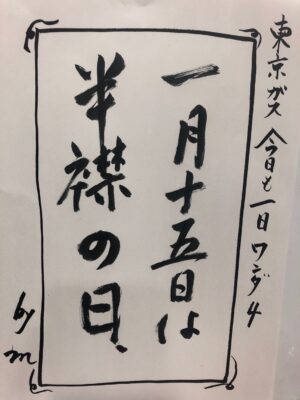 東京ガス 今日も一日ワンダ4
一月十五日は
半襟の日、
by m